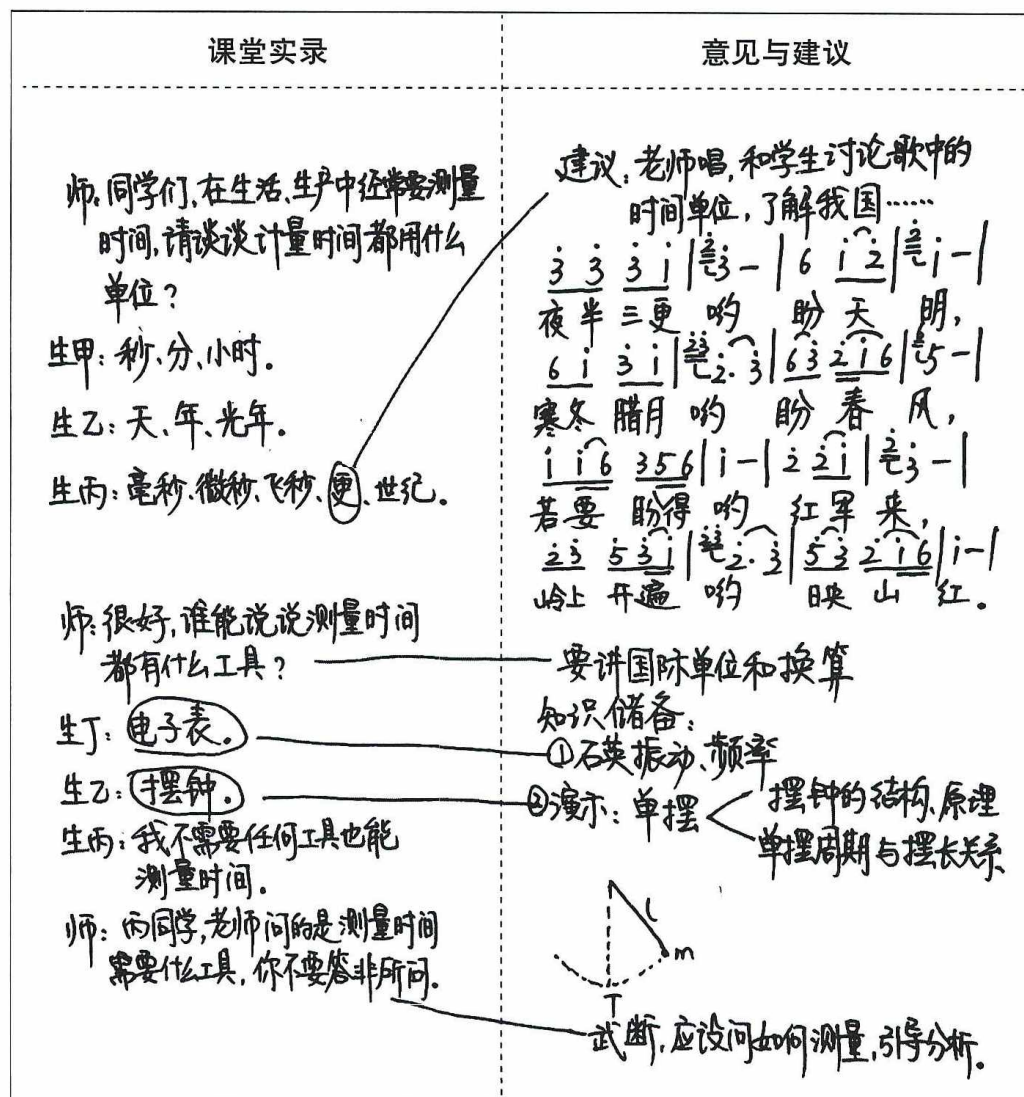 课堂实录
师:同学们,在生活、生产中经常要测量
时间,请谈谈计量时间都用什么
单位?
生甲:秒、分、小时。
生乙:天、年、光年。
生丙:毫秒、微秒、飞秒、更、世纪。
师:很好,谁能说说测量时间
都有什么工具?
生丁:电子表。
生乙:摆钟。
生丙:我不需要任何工具也能
测量时间。
师:丙同学,老师问的是测量时间
需要什么工具,你不要答非所问。
意见与建议
建议:老师唱,和学生讨论歌中的
时间单位,了解我国……
3̇ 3̇ 3̇ i | 2̇ 3̇ — | 6 i 2̇ | 2̇ i — |
夜半三更 哟 盼天 明,
6 i 3̇ i | 2̇3̇ 2̇· 3̇ | 6 3̇ 2̇ i 6 | 6 5 — |
寒冬 腊月 哟 盼 春 风,
i i 6 3 5 6 | i — | 2̇ 2̇ i | 2̇ 3̇ — |
若要 盼得 哟 红军 来,
2̇ 3̇ 5̇ 3̇ i | 2̇3̇ 2̇· 3̇ | 5̇ 3̇ 2̇ i 6 | i — |
岭上 开遍 哟 映 山 红。
要讲国际单位和换算
知识储备:
①石英振动、频率
②演示:单摆
摆钟的结构、原理
单摆周期与摆长关系
l
m
T
武断,应设问如何测量,引导分析。